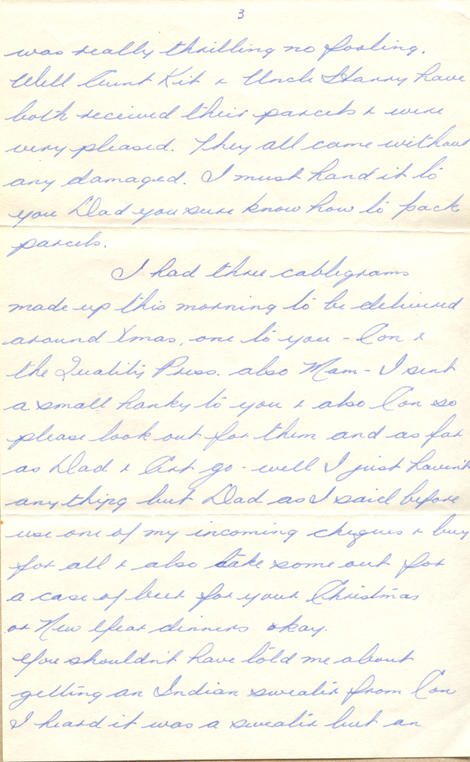 3
was really thrilling no fooling.
Well Aunt Kit & Uncle Harry have
both received their parcels & were
very pleased. They all came without
any damaged. I must hand it to
you Dad you sure know how to pack
parcels.
I had three cablegrams
made up this morning to be delivered
around Xmas. one to you - Con &
the Quality Press. also Mom - I sent
a small hanky to you & also Con so
please look out for them and as far
as Dad & Art go - well I just haven't
anything but Dad as I said before
use one of my incoming cheques & buy
for all & also take some out for
a case of beer for your Christmas
or New Year dinners okay.
You shouldn't have told me about
getting an Indian sweater from Con
I heard it was a sweater but an